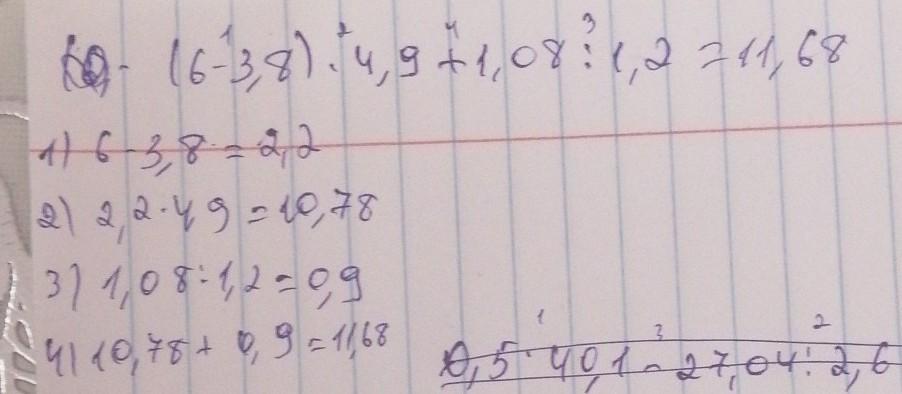 (6-3,8)·4,9+1,08:1,2=11,68
1) 6-3,8=2,2
2) 2,2·4 9=10,78
3) 1,08:1,2=0,9
4) 10,78+0,9=11,68
0,5·40,1-27,04:2,6